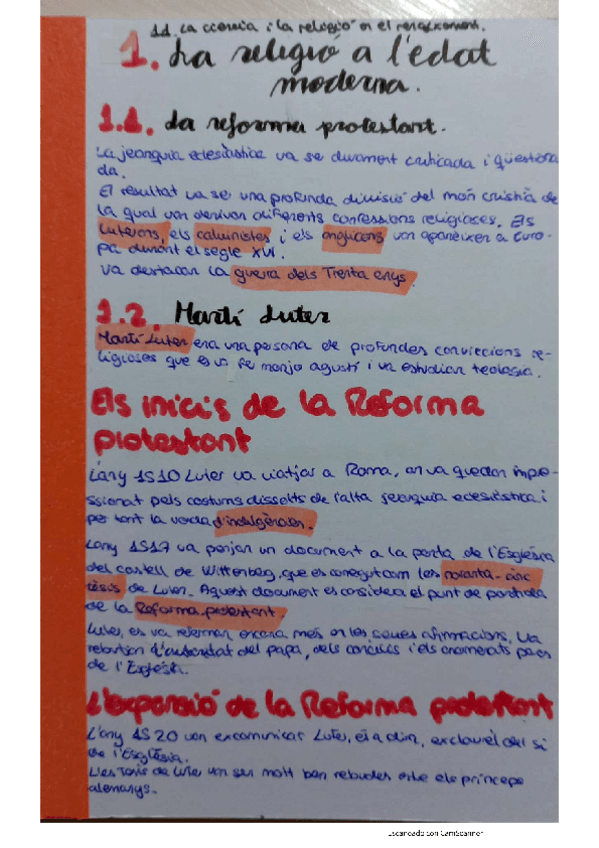 1.1 La ciència i la religió en el renaixement.
1. La religió a l'edat
moderna.
1.1. La reforma protestant.
La jerarquia eclesiàstica va se durament criticada i qüestiona
da.
El resultat va se una profunda divisió del món cristià de
la qual van derivar diferents confessions religioses. Els
luterans, els calvinistes i els anglicans van aparèixer a Euro-
pa durant el segle XVI.
Va destacar la guerra dels Trenta anys.
1.2. Martí Luter
Martí Luter era una persona de profundes conviccions re-
ligioses que es va fe monjo agustí i va estudiar teologia.
Els inicis de la Reforma
protestant
L'any 1510 Luter va viatjar a Roma, on va quedar impre-
ssionat pels costums dissolts de l'alta jerarquia eclesiàstica i
per tant la venda d'indulgències.
L'any 1517 va penjar un document a la porta de l'Església
del castell de Wittenberg, que es conegut com les noranta-cinc
tesis de Luter. Aquest document es considera el punt de partida
de la Reforma protestant.
Luter, es va refermar encara més en les seues afirmacions. Va
rebutjar l'autoritat del papa, dels concilis i els anomenats pares
de l'Església.
L'expansió de la Reforma protestant
L'any 1520 van excomunicar Luter, és a dir, exclourel del si
de l'Església.
Les tesis de Luter van ser molt ben rebudes entre els prínceps
alemanys.
Escaneado con CamScanner